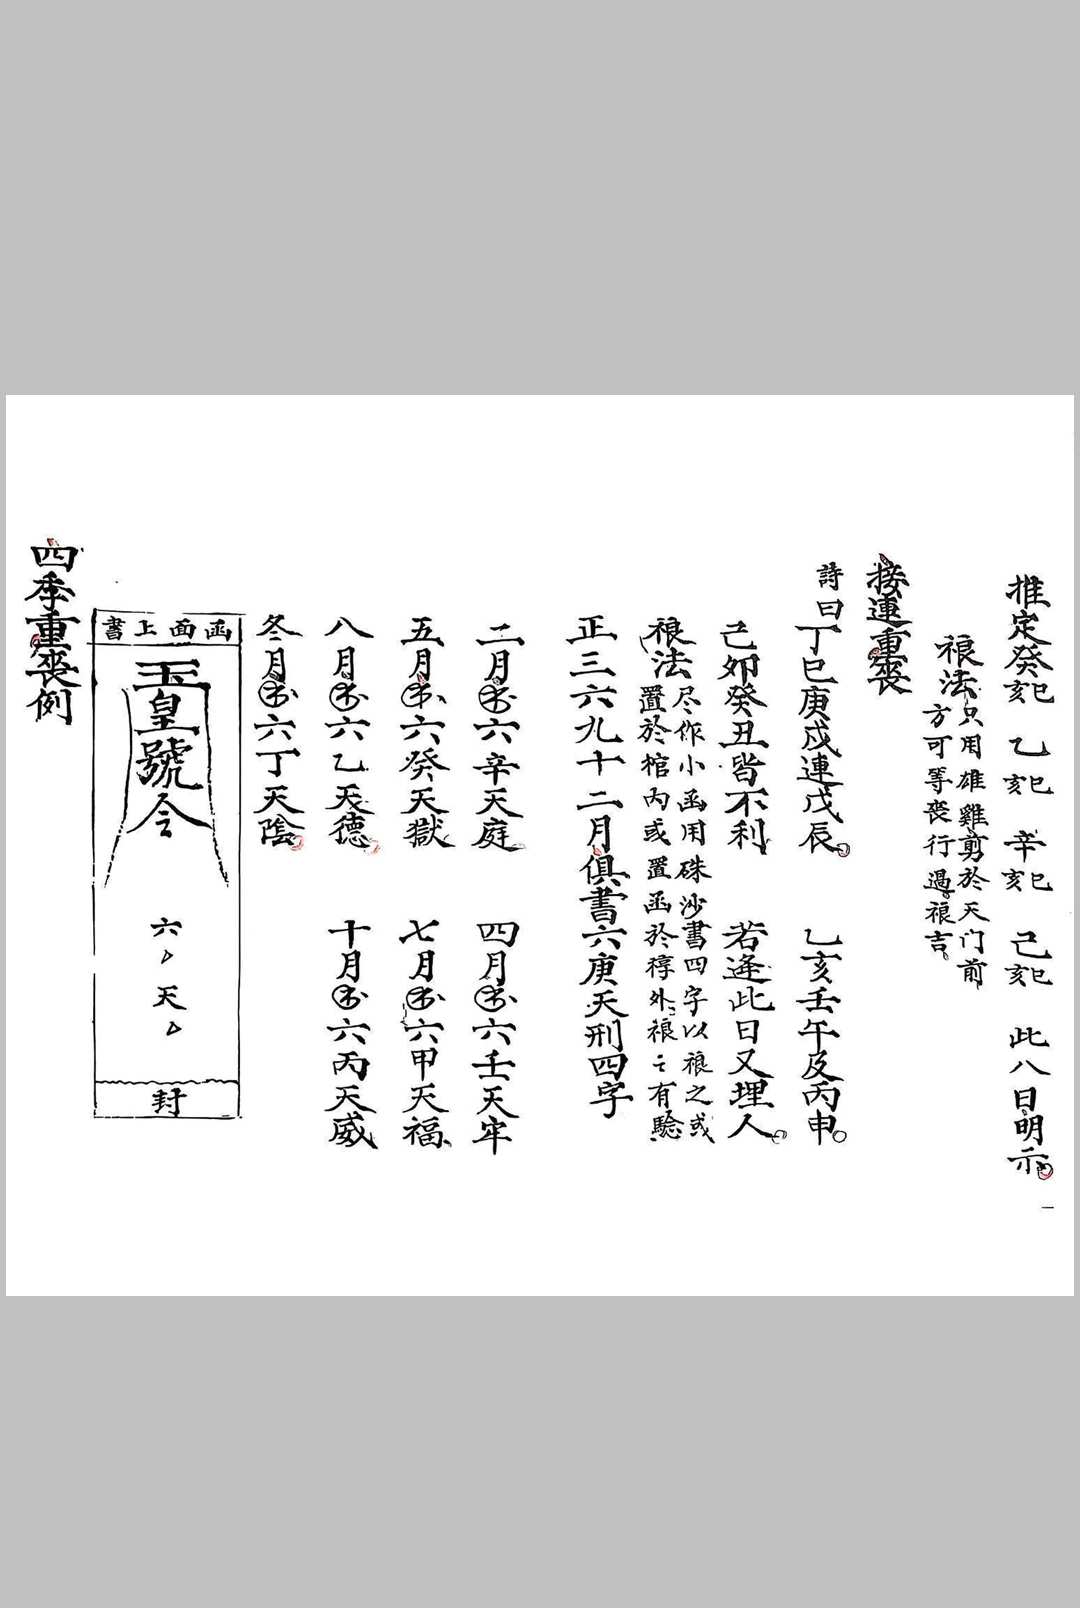 推定癸巳亥 乙巳亥 辛巳亥 己巳亥 此八日明示
一
䄄法只用雄雞剪於天门前
方可等丧行過䄄吉
接連重喪
詩曰丁巳庚戍連戊辰 乙亥壬午及丙申
己夘癸丑皆不利 若逢此日又埋人
䄄法尽作小函用硃沙書四字以䄄之或
置於棺内或置函於椁外䄄之有驗
正三六九十二月俱書六庚天刑四字
二月 六辛天庭 四月 六壬天牢
五月 六癸天獄 七月 六甲天福
八月 六乙天德 十月 六丙天威
冬月 六丁天陰
函面上書
玉皇號令
六 天
封
四季重喪例